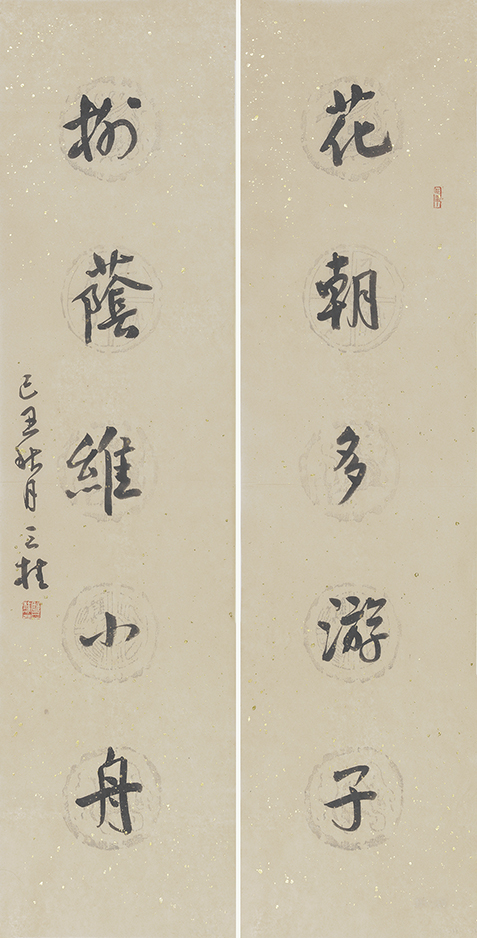 花朝多游子
柳蔭維小舟
己丑秋月三桂